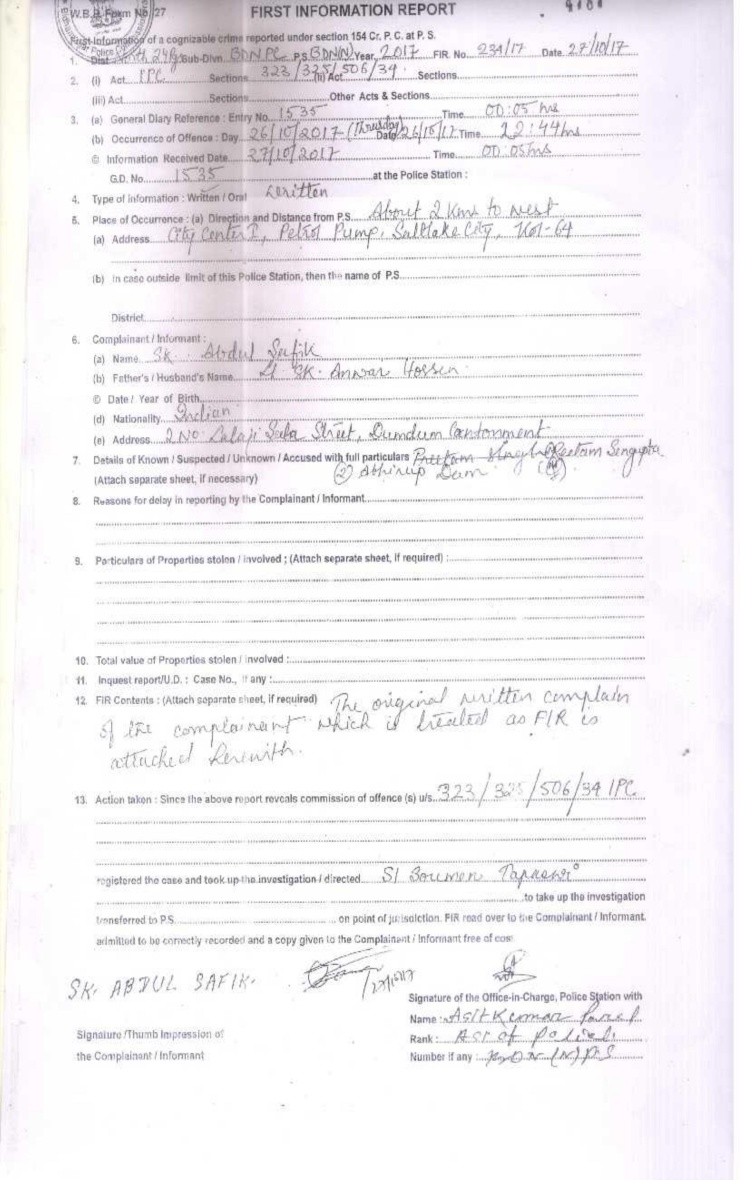 W.B.P. Form No. 27
FIRST INFORMATION REPORT
First Information of a cognizable crime reported under section 154 Cr. P. C. at P. S.
1. Dist. 24 Sub-Divn. BDNPC P.S. BDN(N) Year 2017 FIR No. 234/17 Date 27/10/17
2. (i) Act IPC Sections 323/325/506/34. (ii) Act Sections
(iii) Act Sections Other Acts & Sections
3. (a) General Diary Reference : Entry No. 1535 Time 00:05 hrs
(b) Occurrence of Offence : Day 26/10/2017 (Thursday) Date 26/10/17 Time 22:44 hrs
© Information Received Date 27/10/2017 Time 00:05 hrs
G.D. No. 1535 at the Police Station :
4. Type of information : Written / Oral Written
5. Place of Occurrence : (a) Direction and Distance from P.S. About 2 Kms to west
(a) Address City Center I, Petrol Pump, Saltlake City, Kol-64
(b) In case outside limit of this Police Station, then the name of P.S.
District
6. Complainant / Informant :
(a) Name Sk. Abdul Safik
(b) Father's / Husband's Name Sk. Anwar Hossen
© Date / Year of Birth
(d) Nationality Indian
(e) Address 2 No Street, Dumdum Cantonment
7. Details of Known / Suspected / Unknown / Accused with full particulars Preetam Sengupta
(Attach separate sheet, if necessary) (2) Abhirup Dam
8. Reasons for delay in reporting by the Complainant / Informant
9. Particulars of Properties stolen / involved ; (Attach separate sheet, if required) :
10. Total value of Properties stolen / involved :
11. Inquest report/U.D. : Case No., if any :
12. FIR Contents : (Attach separate sheet, if required) The original written complain
of the complainant which is treated as FIR is
attached herewith.
13. Action taken : Since the above report reveals commission of offence (s) u/s. 323/325/506/34 IPC
registered the case and took up the investigation / directed SI
to take up the investigation
transferred to P.S. on point of jurisdiction. FIR read over to the Complainant / Informant,
admitted to be correctly recorded and a copy given to the Complainant / Informant free of cost
SK. ABDUL SAFIK.
Signature of the Office-in-Charge, Police Station with
Name : Asit Kumar
Signature /Thumb Impression of
Rank : of police
the Complainant / Informant
Number if any : BDN (N) PS